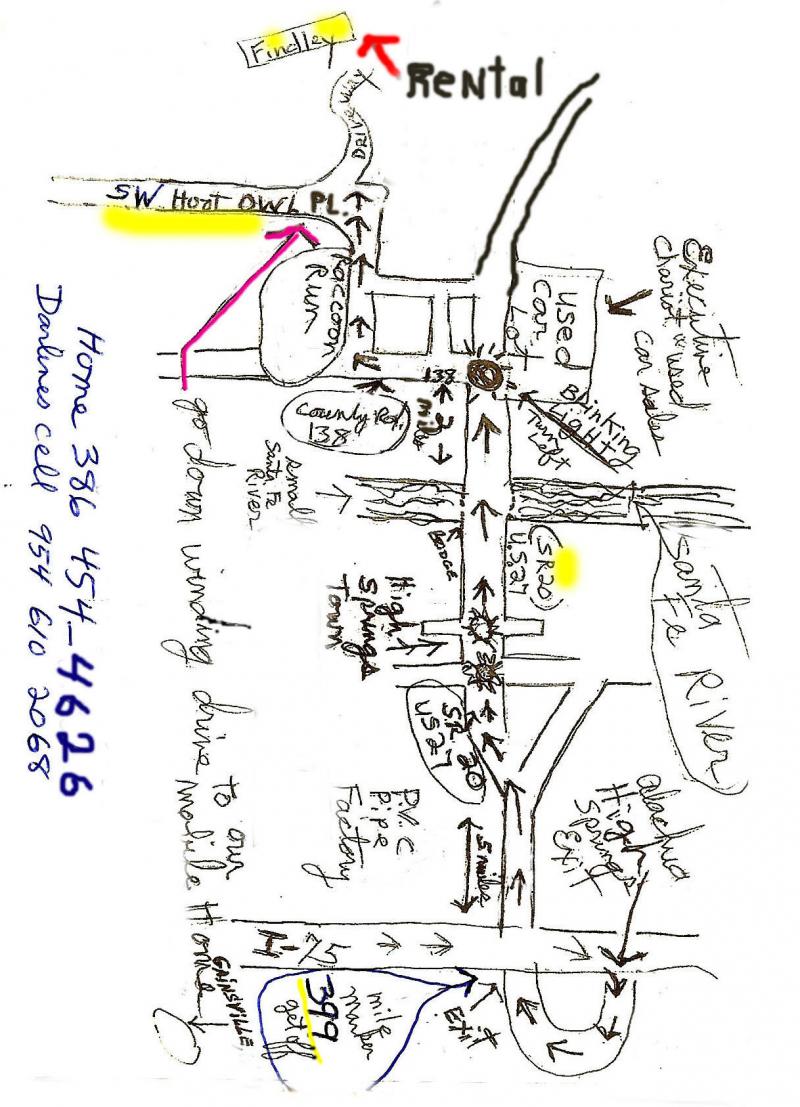 Findley
Rental
DRIVE WAY
SW Hoot OWL PL.
Raccoon
Run
USED
CAR
LOT
Executive
Chariot used
car sales
138
County Rd.
138
2
miles
Blinking
Light
Turn
Left
small
Santa Fe
River
BRIDGE
(SR20)
U.S.27
Santa
Fe River
High
Springs
Town
SR 20
US27
P.V.C
Pipe
Factory
5 miles
alachua
High
Springs
Exit
75
EXIT
mile
marker
399
get off
GAINSVILLE
go down winding drive to our
mobile Home
Home 386 454-4626
Darlines cell 954 610 2068